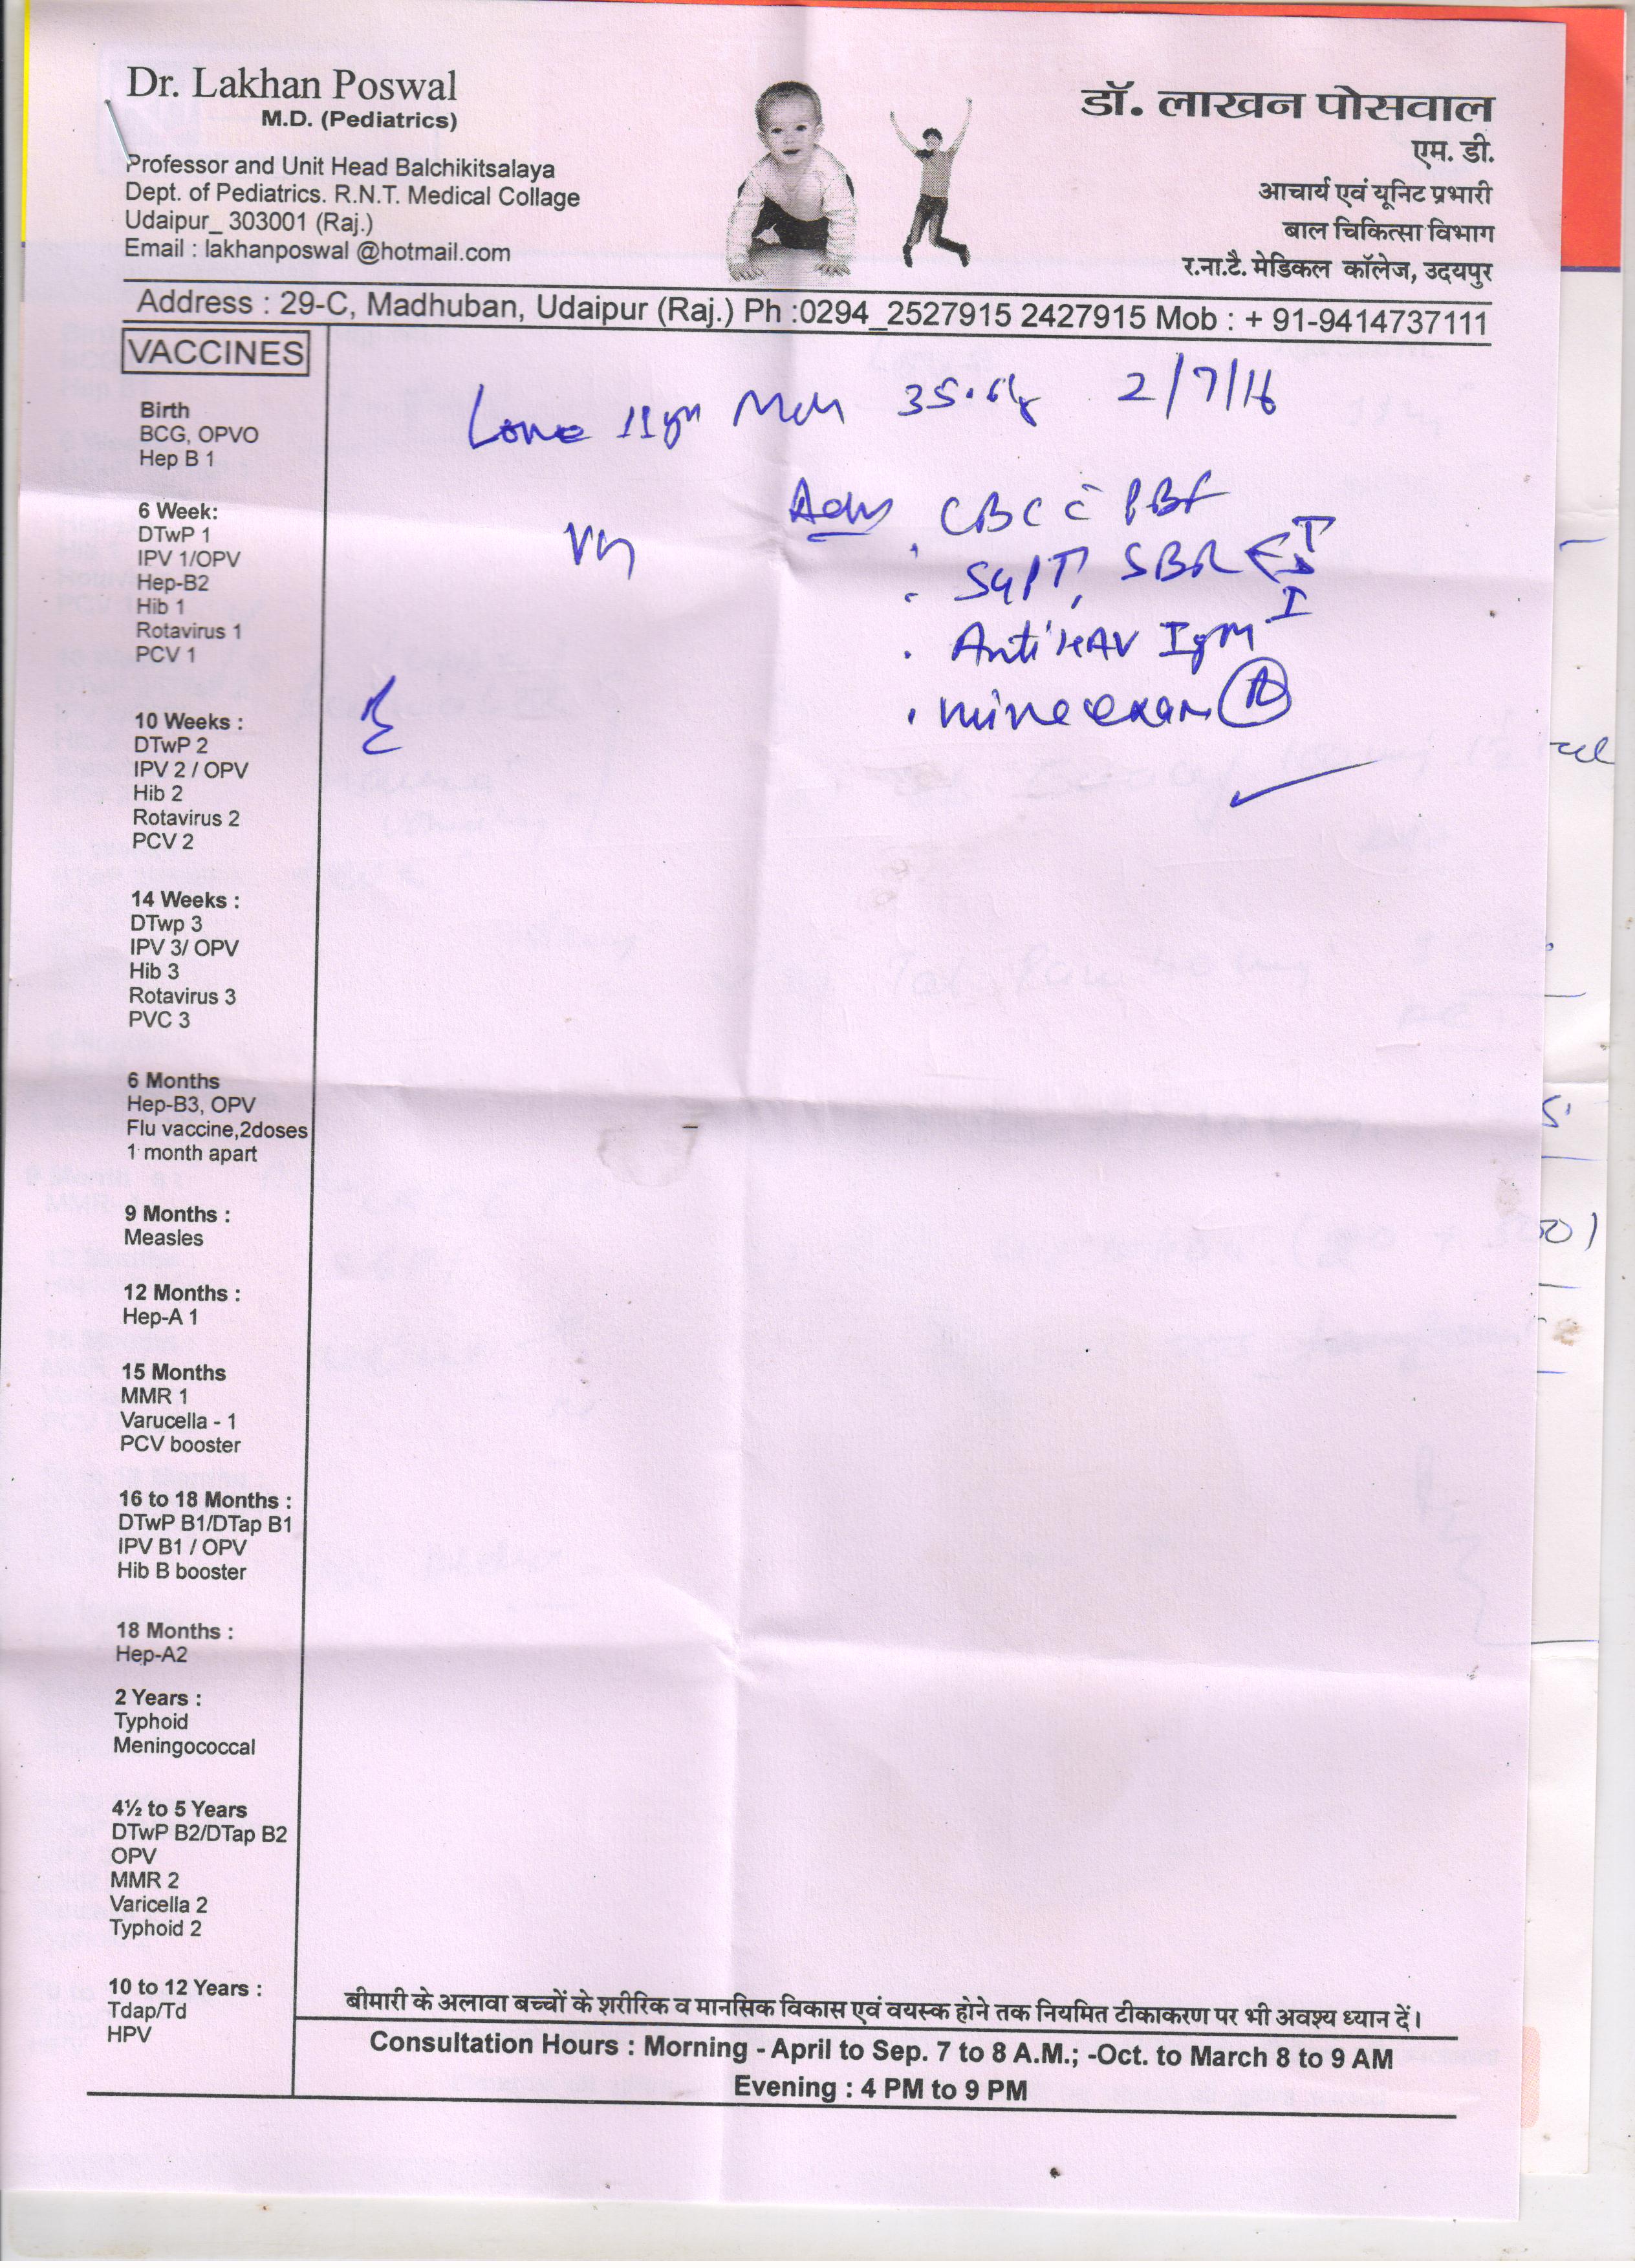 Dr. Lakhan Poswal
M.D. (Pediatrics)
Professor and Unit Head Balchikitsalaya
Dept. of Pediatrics. R.N.T. Medical Collage
Udaipur_ 303001 (Raj.)
Email : lakhanposwal @hotmail.com
डॉ. लाखन पोसवाल
एम. डी.
आचार्य एवं यूनिट प्रभारी
बाल चिकित्सा विभाग
र.ना.टै. मेडिकल कॉलेज, उदयपुर
Address : 29-C, Madhuban, Udaipur (Raj.) Ph :0294_2527915 2427915 Mob : + 91-9414737111
VACCINES
Birth
BCG, OPVO
Hep B 1
6 Week:
DTwP 1
IPV 1/OPV
Hep-B2
Hib 1
Rotavirus 1
PCV 1
10 Weeks :
DTwP 2
IPV 2 / OPV
Hib 2
Rotavirus 2
PCV 2
14 Weeks :
DTwp 3
IPV 3/ OPV
Hib 3
Rotavirus 3
PVC 3
6 Months
Hep-B3, OPV
Flu vaccine,2doses
1 month apart
9 Months :
Measles
12 Months :
Hep-A 1
15 Months
MMR 1
Varucella - 1
PCV booster
16 to 18 Months :
DTwP B1/DTap B1
IPV B1 / OPV
Hib B booster
18 Months :
Hep-A2
2 Years :
Typhoid
Meningococcal
4½ to 5 Years
DTwP B2/DTap B2
OPV
MMR 2
Varicella 2
Typhoid 2
10 to 12 Years :
Tdap/Td
HPV
11 2/7/16
Adv CBC c̄ PBF
SGPT, SBR T D I
Anti HAV IgM
exam R
बीमारी के अलावा बच्चों के शरीरिक व मानसिक विकास एवं वयस्क होने तक नियमित टीकाकरण पर भी अवश्य ध्यान दें।
Consultation Hours : Morning - April to Sep. 7 to 8 A.M.; -Oct. to March 8 to 9 AM
Evening : 4 PM to 9 PM